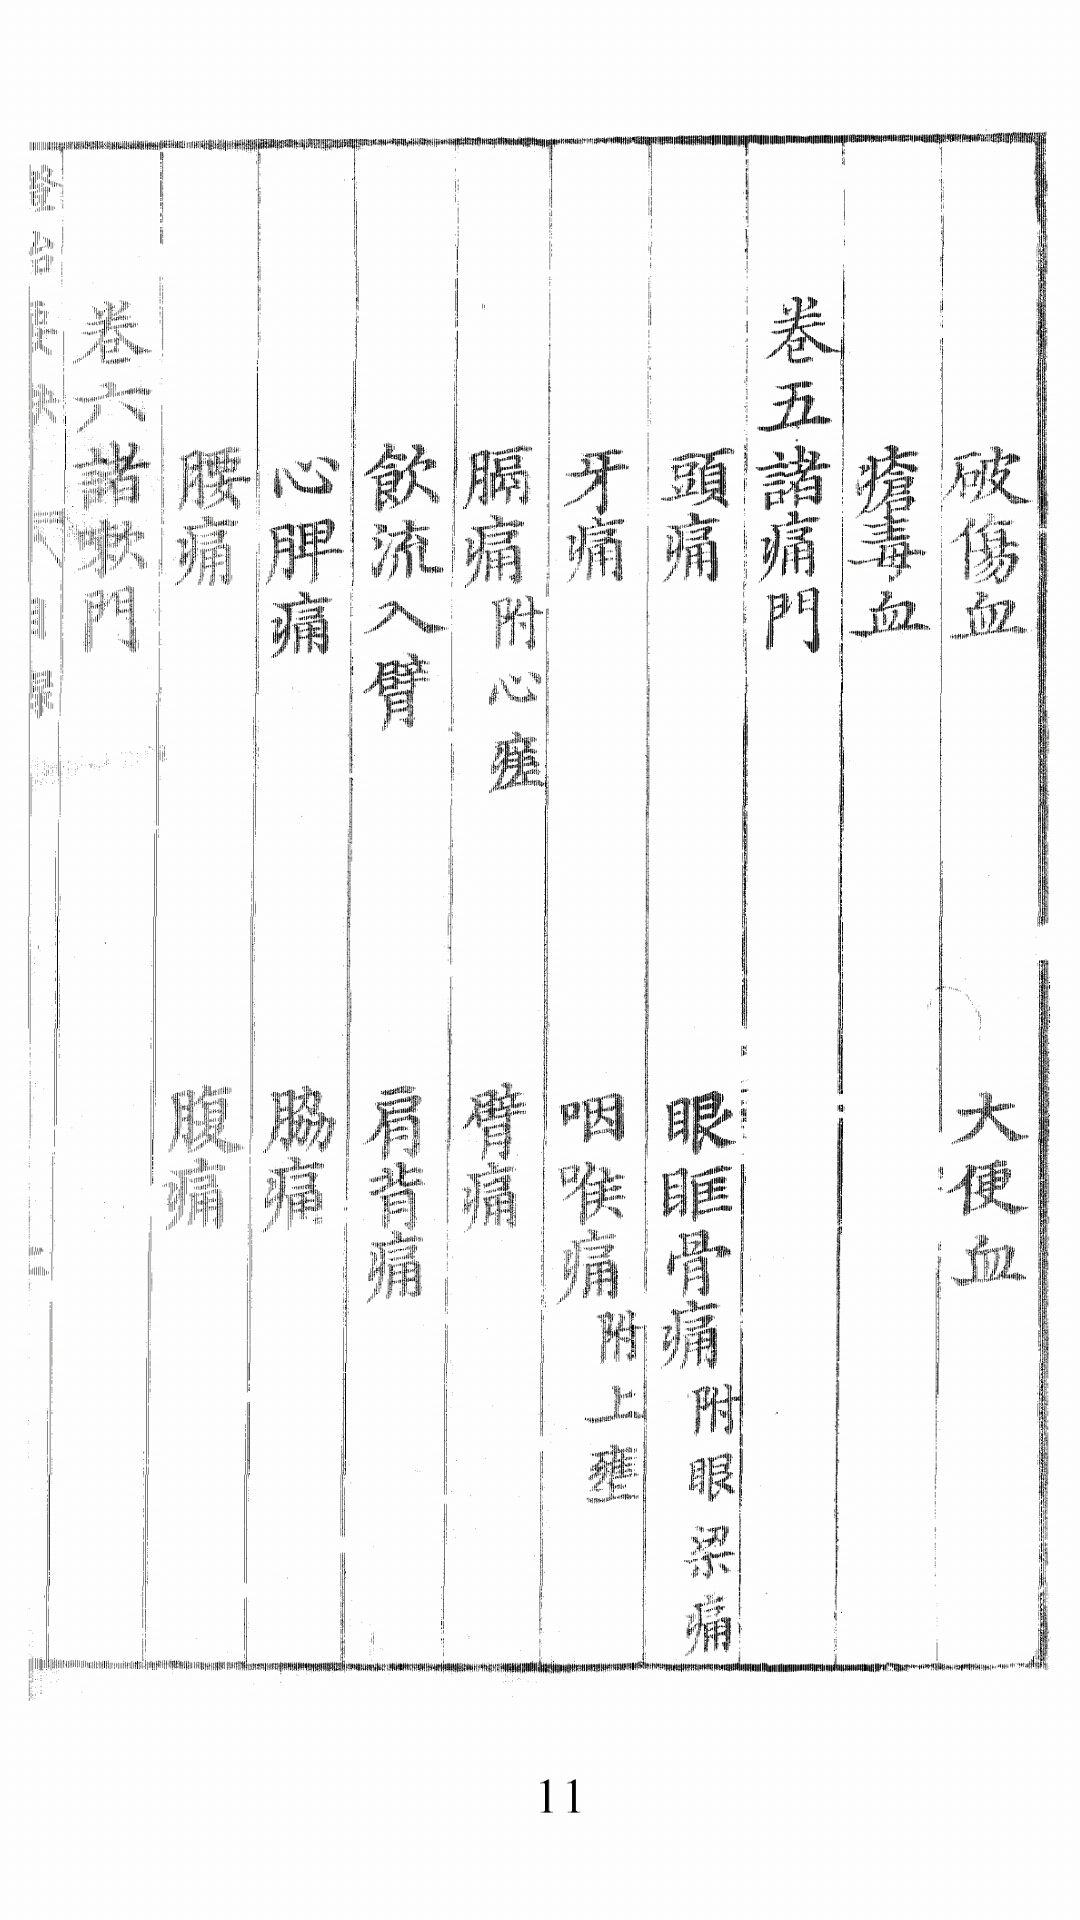 破傷血　大便血
瘡毒血
卷五諸痛門
頭痛　眼眶骨痛附眼梁痛
牙痛　咽喉痛附上壅
膈痛附心痓　臂痛
飲流入臂　肩背痛
心脾痛　脇痛
腰痛　腹痛
卷六諸嗽門
證治要訣　目錄　二
11